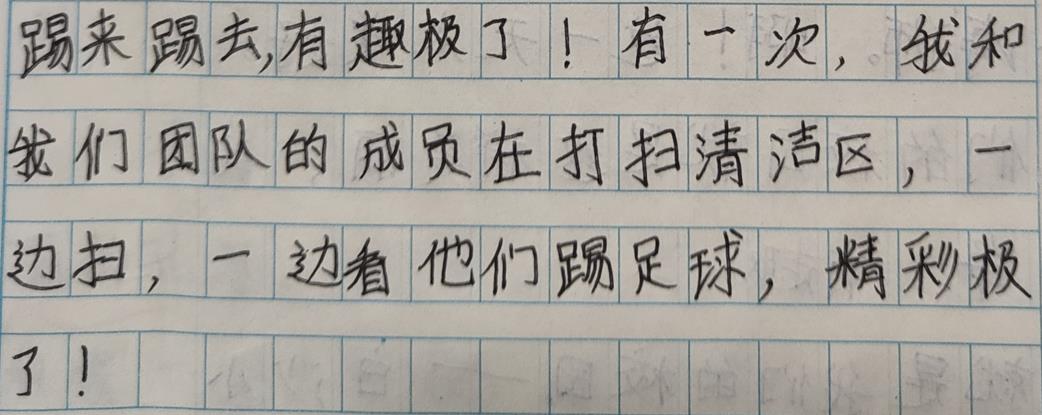 踢来踢去,有趣极了!有一次,我和
我们团队的成员在打扫清洁区,一
边扫,一边看他们踢足球,精彩极
了!